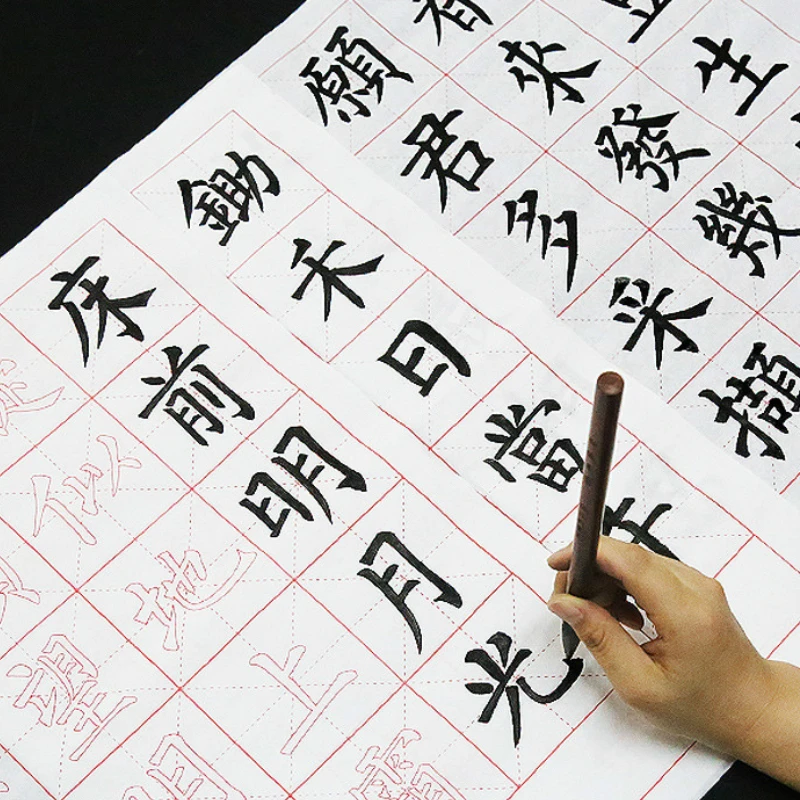 生
來發幾
願君多采擷
鋤禾日當午
床前明月光
似地上霜
望明